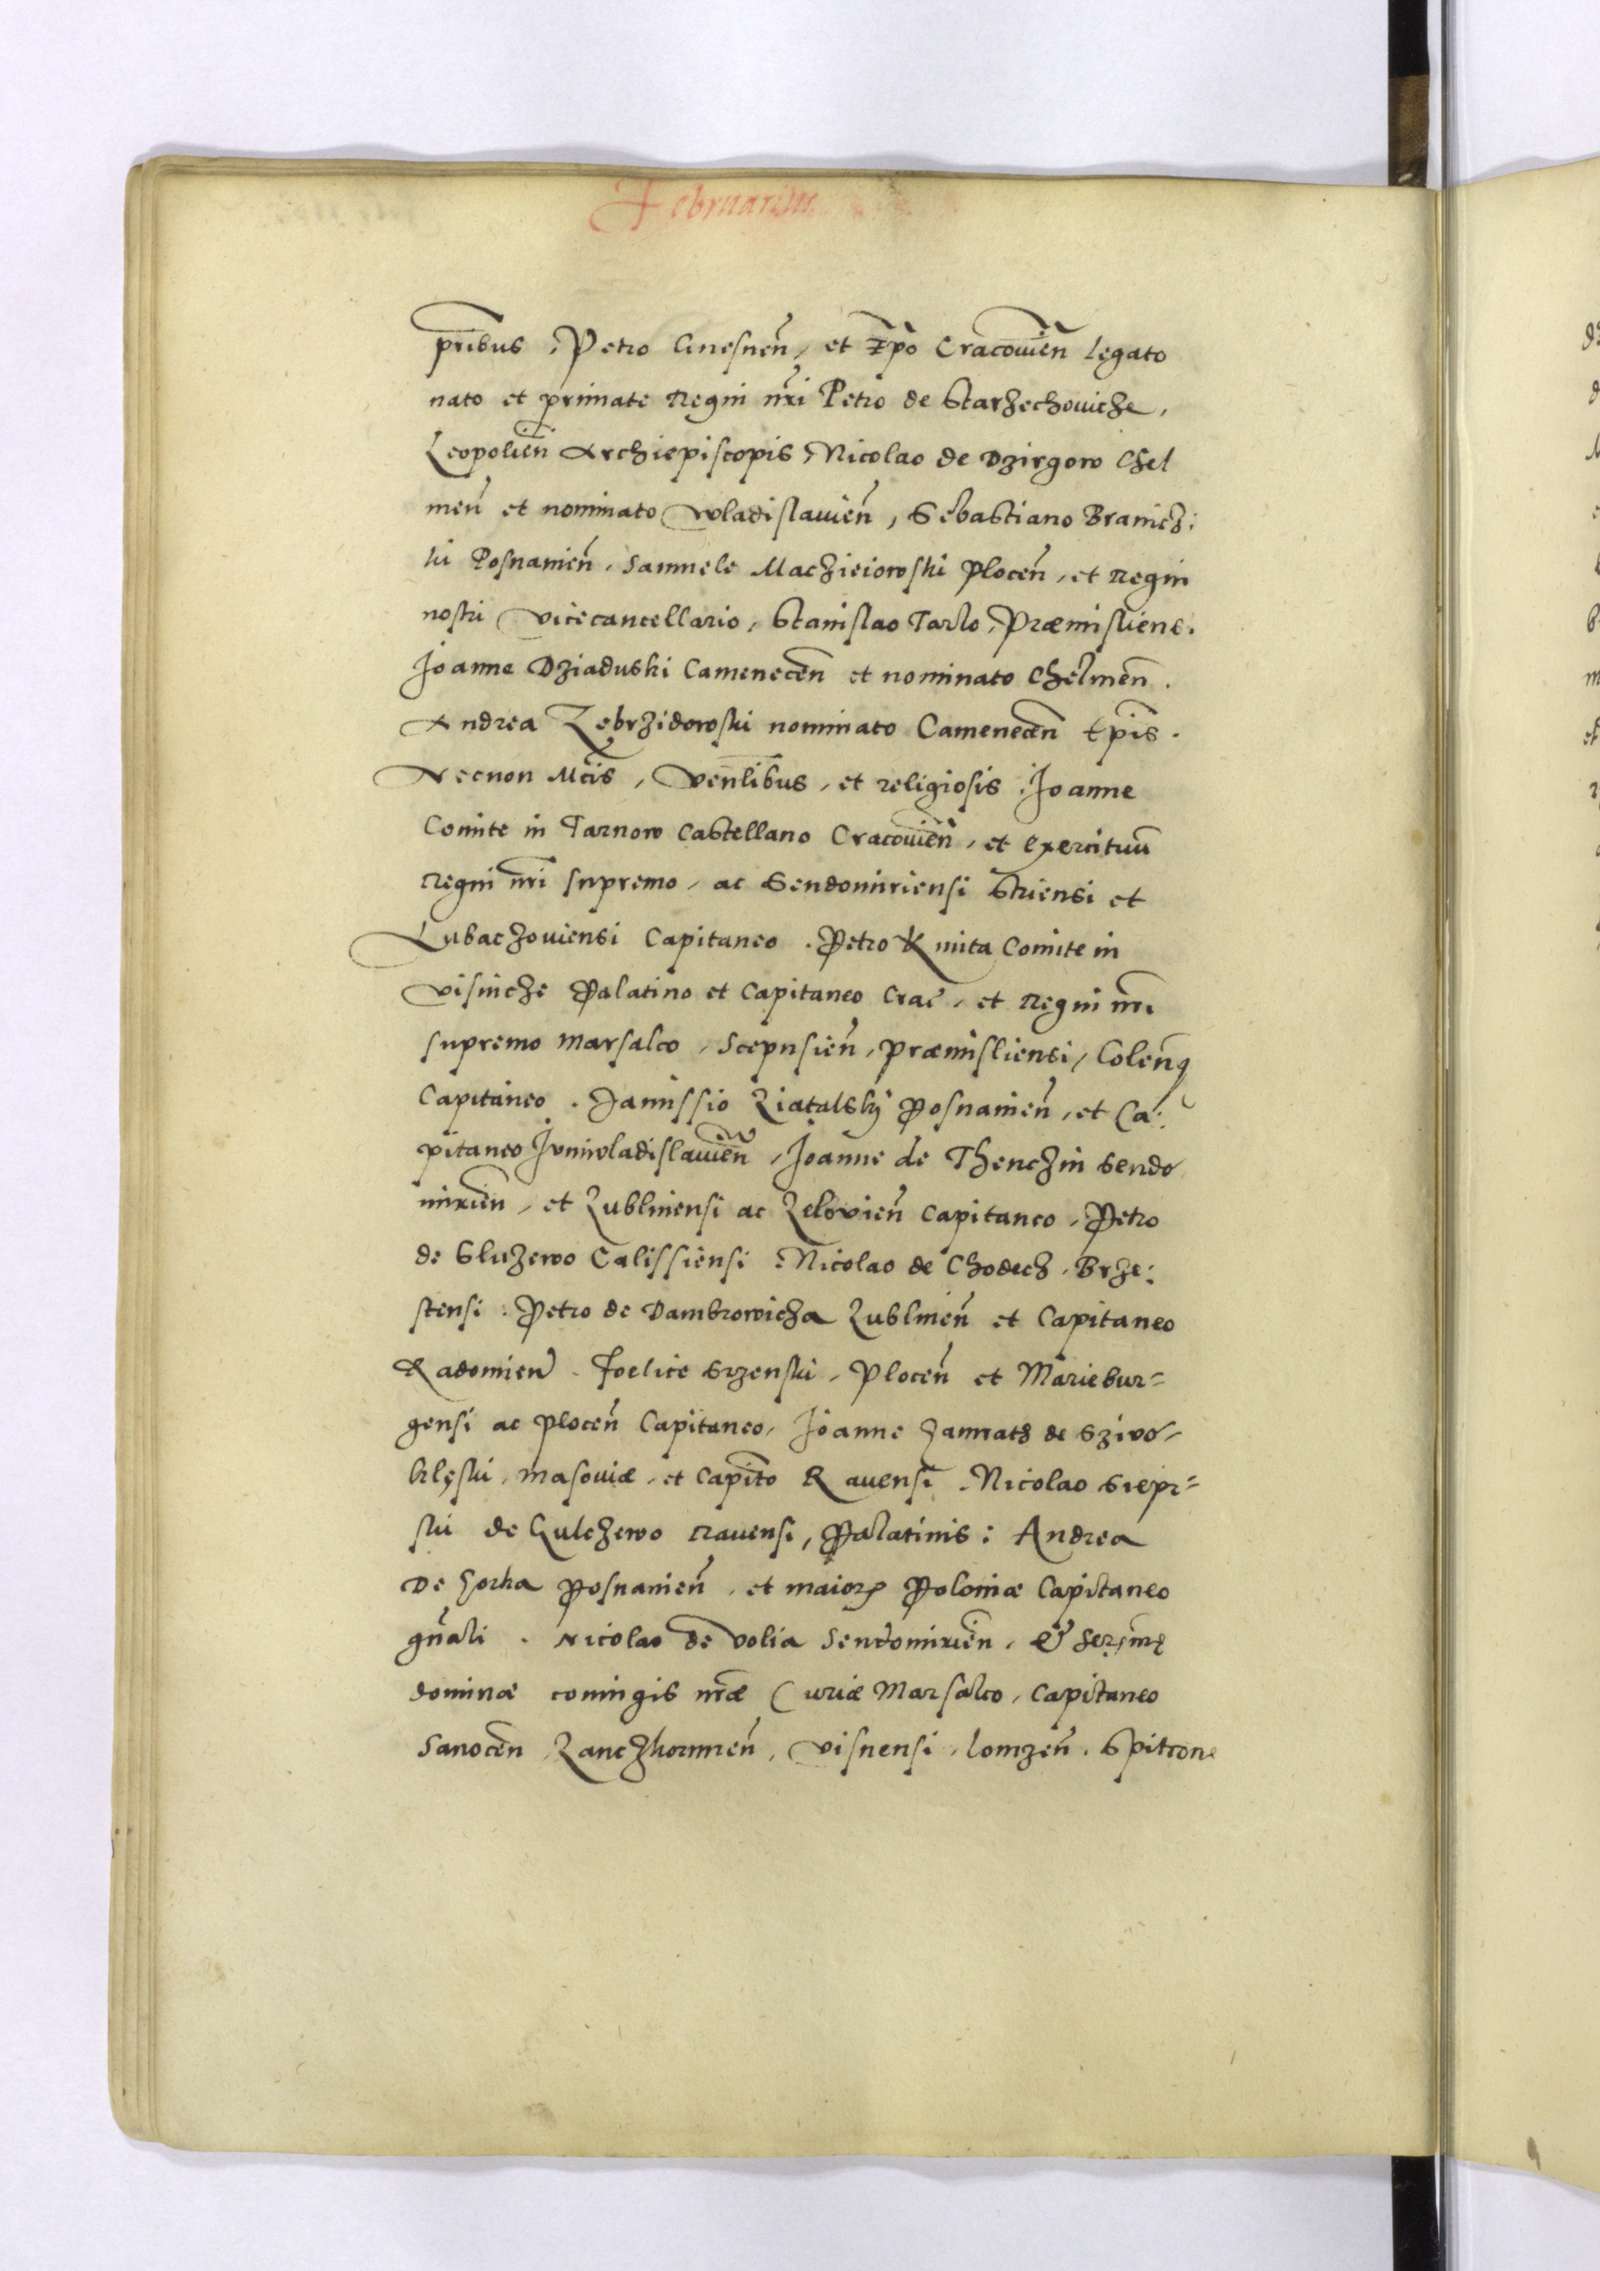 Februarius
pribus, Petro Gnesnen̄, et Ep̄o Cracovien̄ legato
nato et primate Regni nr̄i Petro de Starzechoviche,
Leopolien̄ Archiepiscopis, Nicolao de Dzirgow Chel
men̄ et nominato Wladislavien̄, Sebastiano Branicz:
ki Posnanien̄, Samuele Maczieiowski Plocen̄, et Regni
nostri Vicecancellario, Stanislao Tarlo, Præmisliens.
Joanne Dziaduski Camenecen̄ et nominato Chelmen̄.
Andrea Zebrzidowski nominato Camenecen̄ Ep̄is.
Necnon Mcis, Ven̄libus, et religiosis, Joanne
Comite in Tarnow Castellano Cracovien̄, et exercituū
Regni nr̄i supremo, ac Sendomiriensi Striensi et
Lubaczoviensi Capitaneo. Petro Kmita Comite in
Visniche Palatino et Capitaneo Crac̄, et Regni nr̄i
supremo Marsalco, Scepusien̄, Præmisliensi, Colen̄q
Capitaneo. Janussio Latalskÿ Posnanien̄, et Ca:
pitaneo Junivladislavien̄, Joanne de Thenczin Sendo
mirien̄, et Lubliniensi ac Zelovien̄ Capitaneo, Petro
de Sluzewo Calissiensi Nicolao de Chodecz, Brze:
stensi: Petro de Dambrowicza Lublinen̄ et Capitaneo
Radomien̄. Foelice Srzenski, Plocen̄ et Mariebur=
gensi ac Plocen̄ Capitaneo, Joanne de
Masoviæ, et Capit̄o Ravensi. Nicolao Siepr=
ski de Gulczewo Ravensi, Palatinis: Andrea
De Gorka Posnanien̄, et maioris Poloniæ Capitaneo
gn̄ali. Nicolao de Volia Sendomirien̄, & Ser,m̄ę
dominæ coniugis nr̄æ Curiæ Marsalco, Capitaneo
Sanocen̄ Visnensi, Lomzen̄. Spitcone